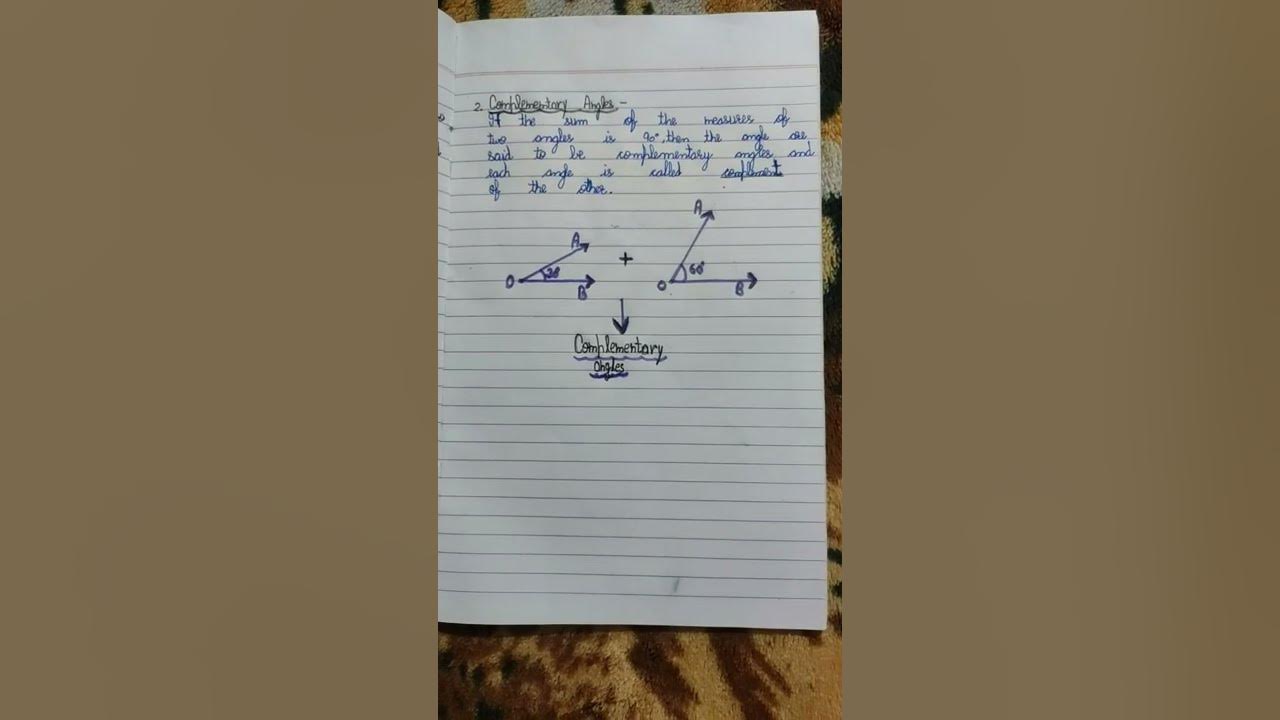 2. Complementary Angles -
If the sum of the measures of
two angles is 90°, then the angle are
said to be complementary angles and
each angle is called complement
of the other.
A
A
+
30°
60°
O
B
O
B
Complementary
angles